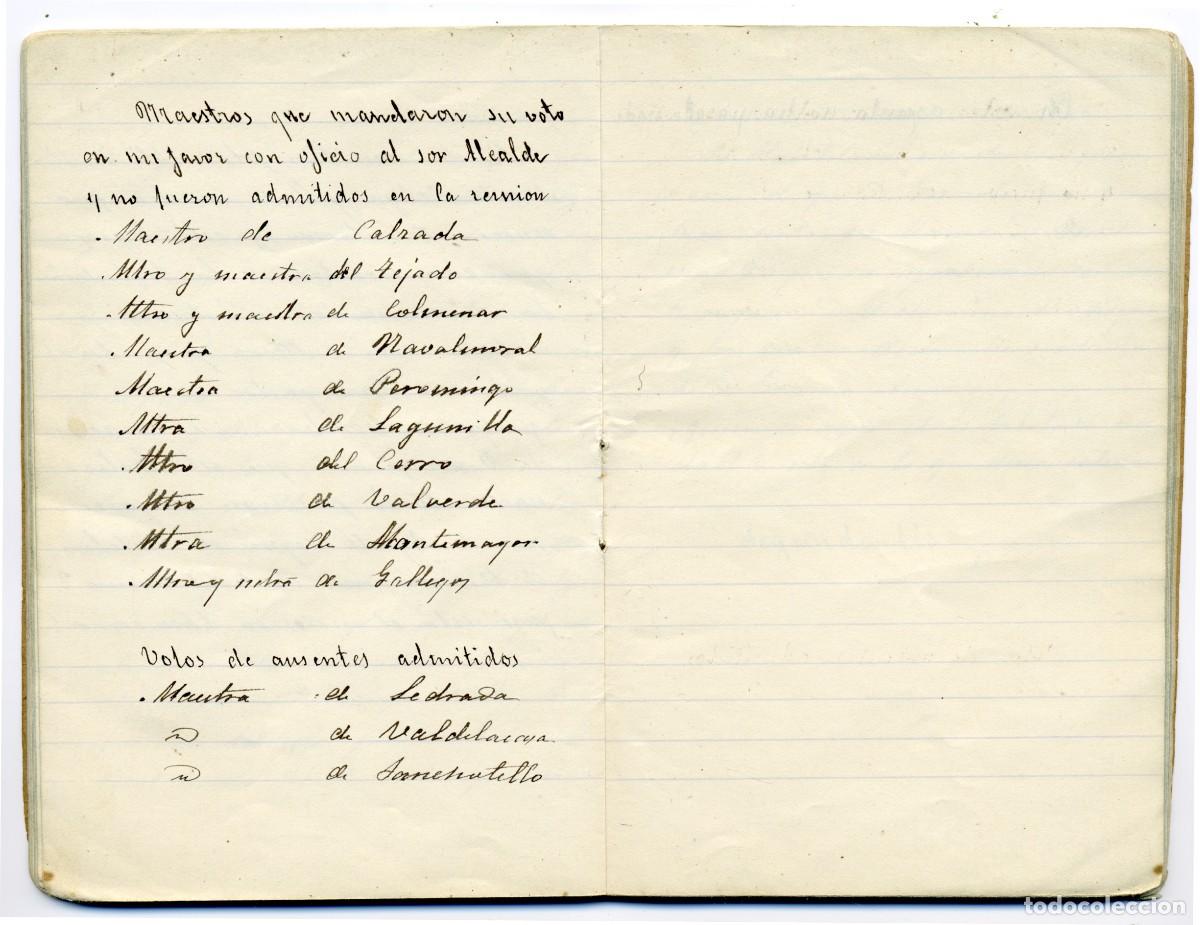 Maestros que mandaron su voto
en mi favor con oficio al sor Alcalde
y no fueron admitidos en la reunion
Maestro de Calzada
Mtro y maestra del Tejado
Mtro y maestra de Colmenar
Maestra de Navalmoral
Maestra de Peromingo
Mtra de Lagunilla
Mtro del Cerro
Mtro de Valverde
Mtra de Montemayor
Mtro y mtra de Gallegos
Votos de ausentes admitidos
Maestra de Ledrada
de Valdelacasa
de Sanchotello
todocoleccion